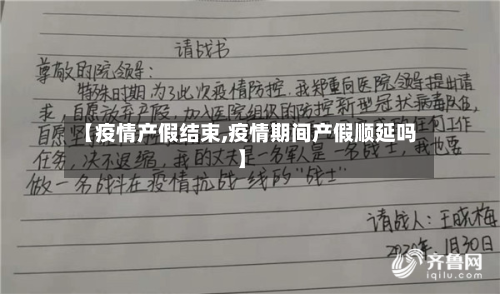 请战书
尊敬的院领导：
特殊时期，为了此次疫情防控，我郑重向医院领导提出请
求，自愿放弃产假，加入医院组织的防控新型冠状病毒队伍，
自愿坚
【疫情产假结束,疫情期间产假顺延吗
】
任何工作
任务，决不退缩，我的丈夫是一名军人是一名战士，我也要
做一名战斗在疫情抗战一线的“战士”
请战人：王晓梅
2020年1月30日
齐鲁网
iqilu.com